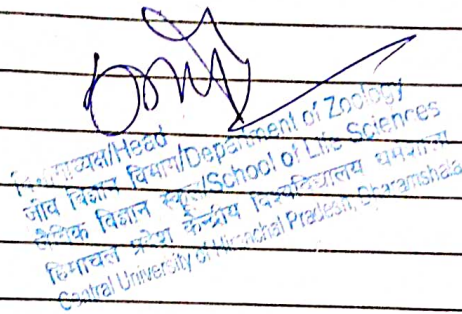 विभागाध्यक्ष/Head
जीव विज्ञान विभाग/Department of Zoology
विज्ञान स्कूल/School of Life Sciences
हिमाचल प्रदेश केन्द्रीय विश्वविद्यालय धर्मशाला
Central University of Himachal Pradesh, Dharamshala